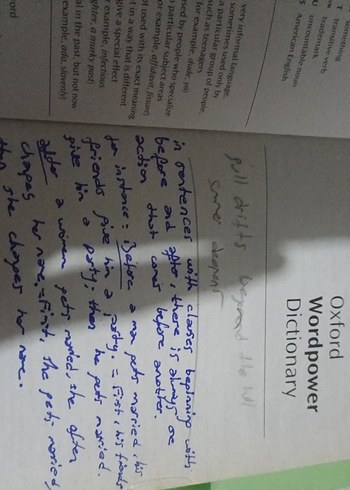 something
transitive verb
trademark
uncountable noun
American English
very informal language,
sometimes used only by
a particular group of people,
such as teenagers
(for example dude, pal)
used by people who specialize
in particular subject areas
(for example, affidavit, fission)
not used with its exact meaning
but in a way that is different
to give a special effect
(for example, infectious
laughter, a murky past)
al in the past, but not now
example, ado, slovenly)
word
Oxford
Wordpower
Dictionary
pull drifts beyond the hill
some
in sentences with clauses beginning with
before and after, there is always one
action that comes before another.
for instance: Before a man gets married, his
friends give him a party. = First, his friends
give him a party; then he gets married.
After a woman gets married, she often
changes her name. = First, she gets married;
then she changes her name.